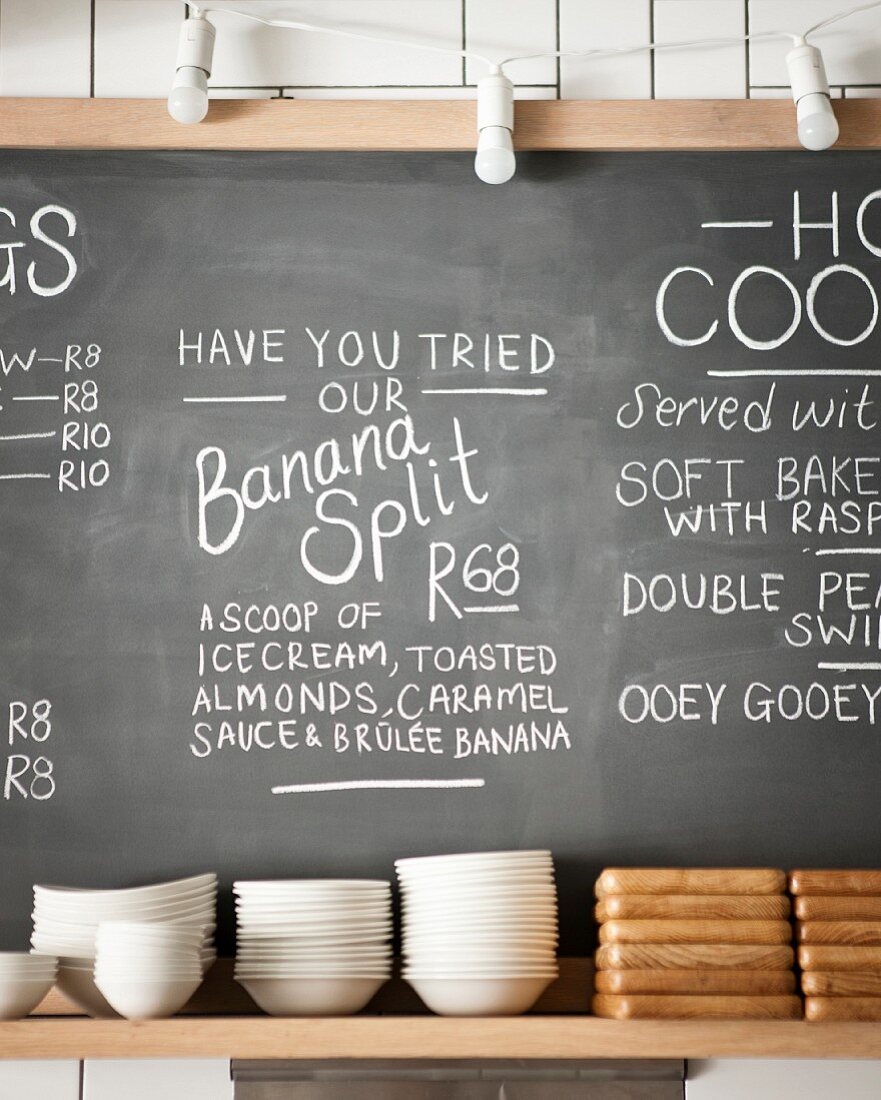 GS
W-R8
R8
R10
R10
R8
R8
HAVE YOU TRIED
OUR
Banana
Split
R68
A SCOOP OF
ICECREAM, TOASTED
ALMONDS, CARAMEL
SAUCE & BRÛLÉE BANANA
— HO
COO
Served wit
SOFT BAKE
WITH RASP
DOUBLE PEA
SWI
OOEY GOOEY